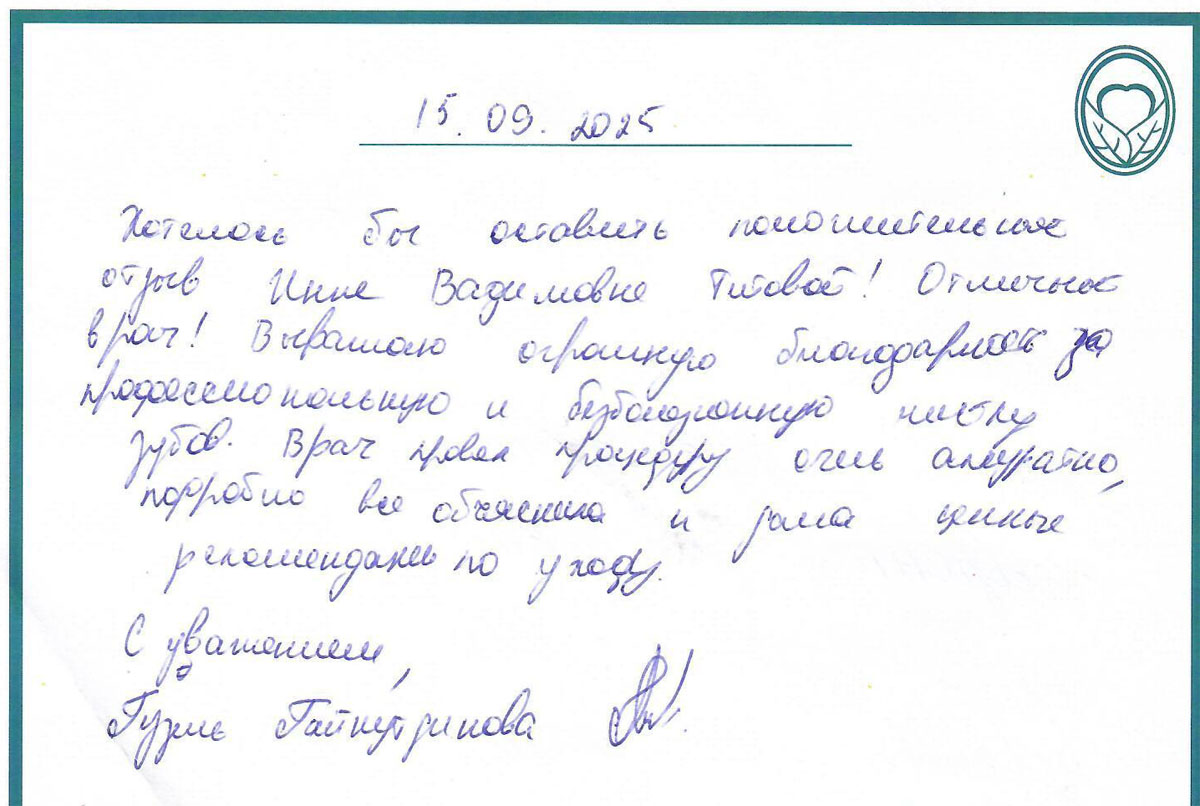 15.09.2025
Хотелось бы оставить положительный
отзыв Инне Вадимовне Титовой! Отличный
врач! Выражаю огромную благодарность за
профессиональную и безболезненную чистку
зубов. Врач провел процедуру очень аккуратно,
подробно все объяснила и дала ценные
рекомендации по уходу.
С уважением,
Гузель Гайнутдинова